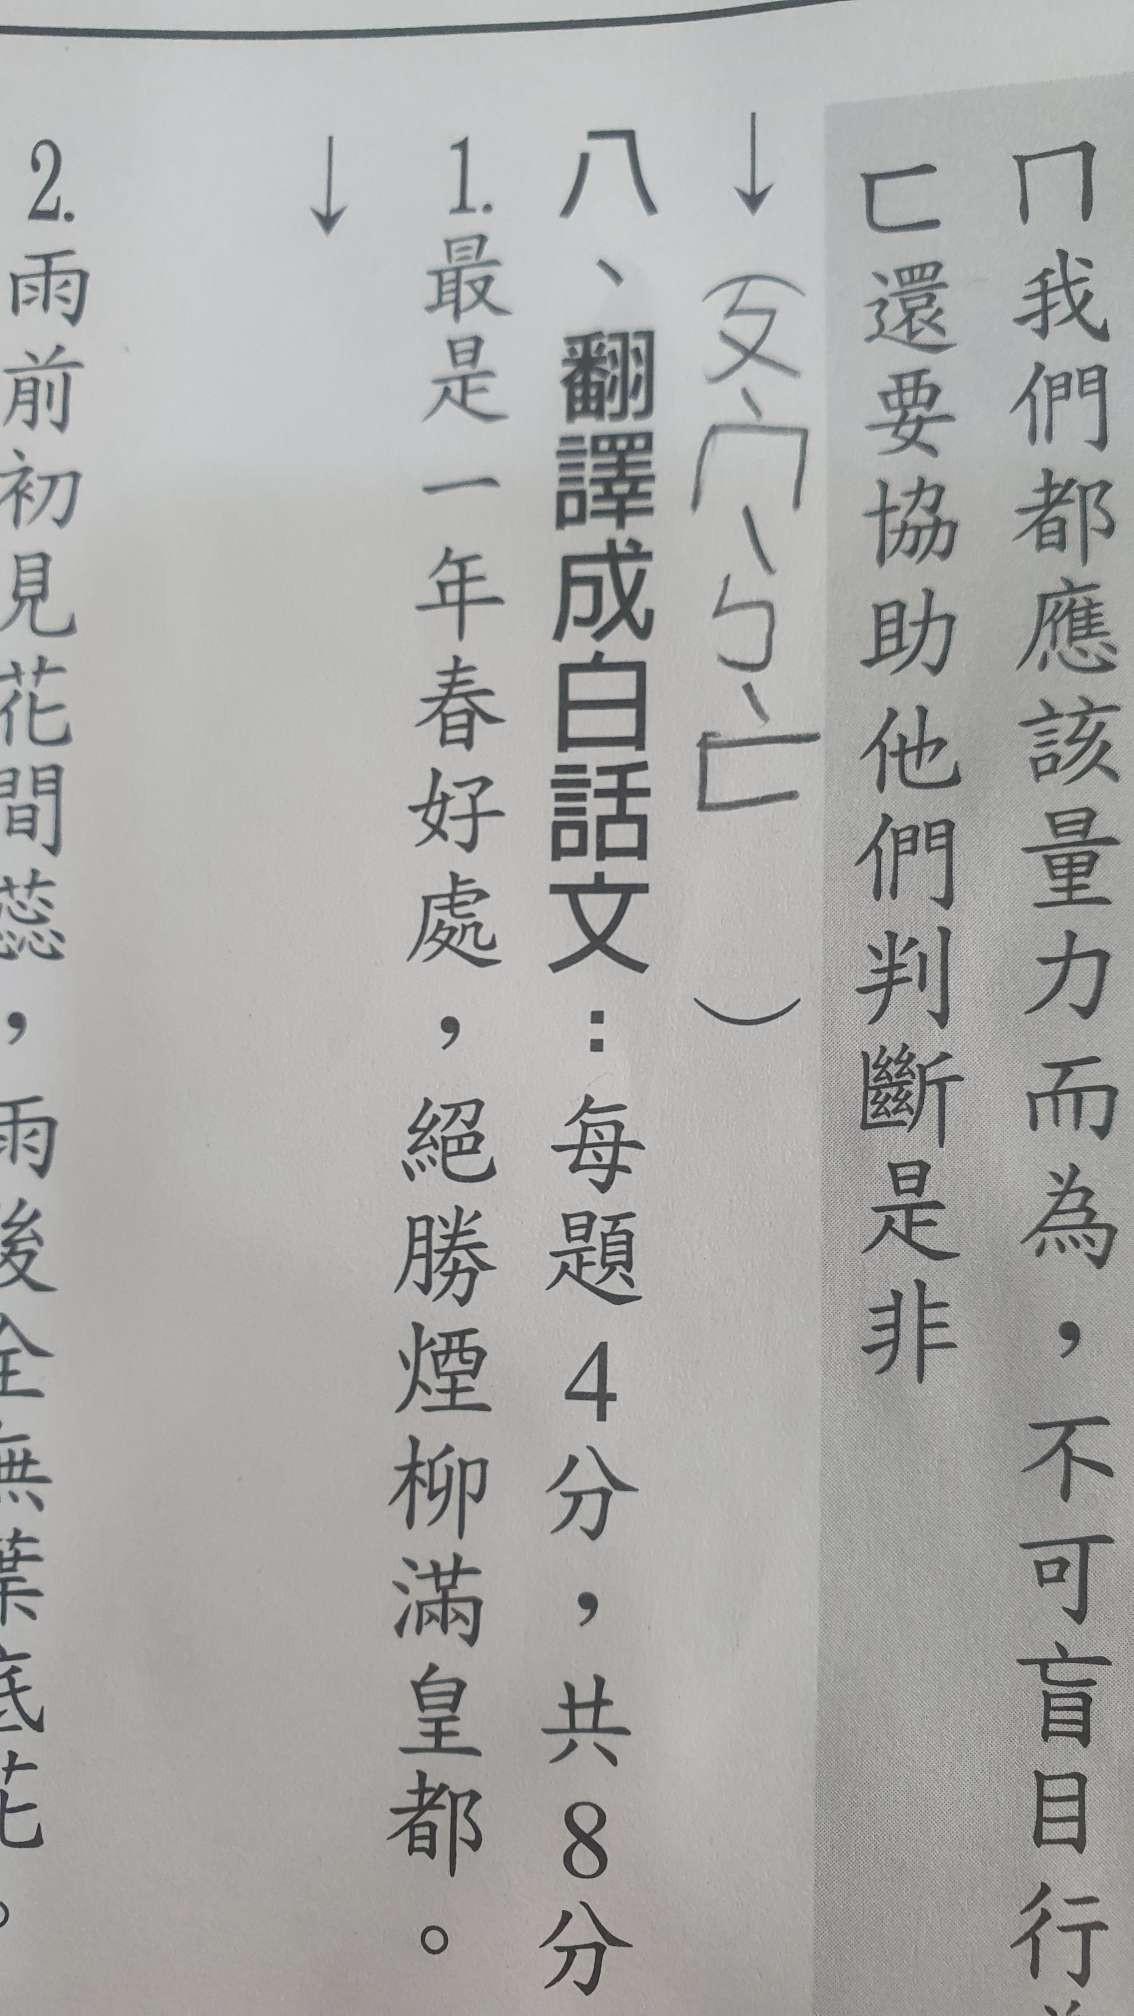 ㄇ我們都應該量力而為，不可盲目行
ㄈ還要協助他們判斷是非
↓（ㄆ、ㄇ、ㄅ、ㄈ）
八、翻譯成白話文：每題4分，共8分
1.最是一年春好處，絕勝煙柳滿皇都。
↓
2.雨前初見花間蕊，雨後全無葉底花。